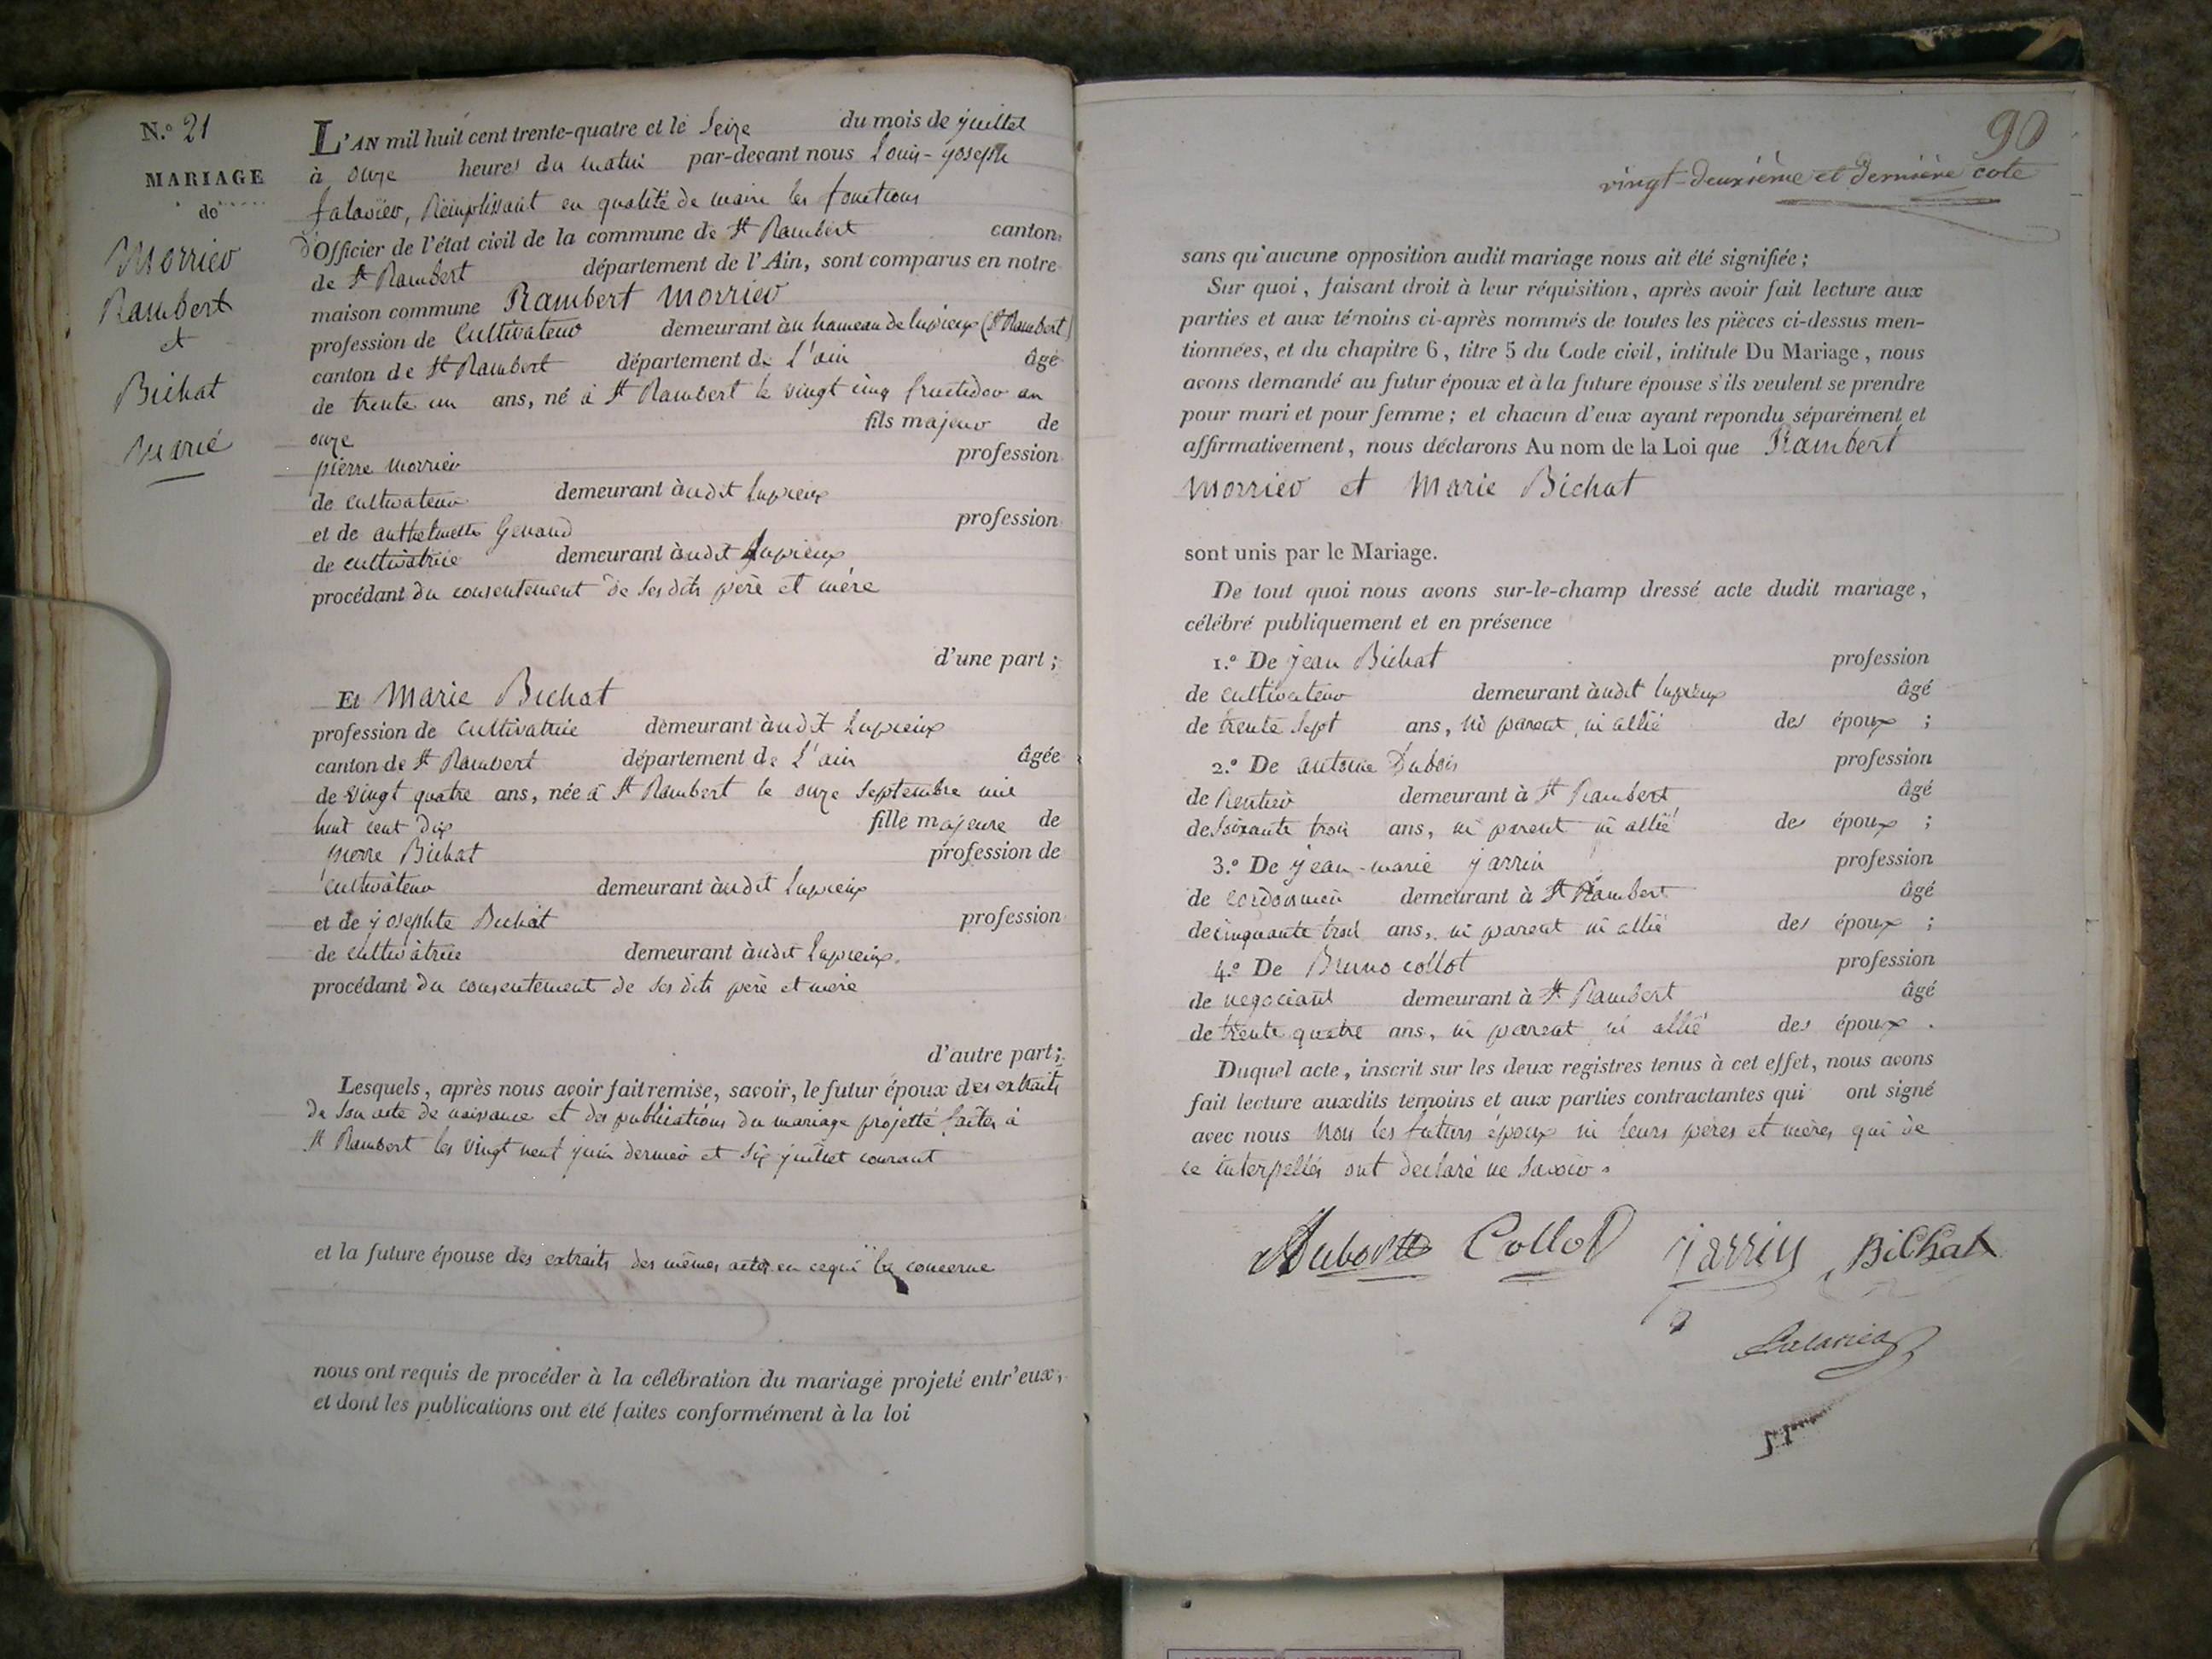 N.º 21
MARIAGE
de
Morrier
Rambert
et
Bichat
Marie
L'AN mil huit cent trente-quatre et le seize du mois de juillet
à onze heures du matin par-devant nous Louis-Joseph
falavier, Remplissant en qualité de maire les fonctions
d'Officier de l'état civil de la commune de St Rambert canton
de St Rambert département de l'Ain, sont comparus en notre
maison commune Rambert Morrier
profession de Cultivateur demeurant au hameau de Lupieux (St Rambert)
canton de St Rambert département de L'ain âgé
de trente un ans, né à St Rambert le vingt cinq fructidor an
onze fils majeur de
pierre Morrier profession
de cultivateur demeurant audit Lupieux
et de anthelmette Genaud profession
de cultivatrice demeurant audit Lupieux
procédant du consentement de ses dits père et mère
d'une part ;
Et Marie Bichat
profession de Cultivatrice demeurant audit Lupieux
canton de St Rambert département de L'ain âgée
de vingt quatre ans, née à St Rambert le onze Septembre mil
huit cent dix fille majeure de
pierre Bichat profession de
cultivateur demeurant audit Lupieux
et de josephte Bichat profession
de cultivatrice demeurant audit Lupieux.
procédant du consentement de ses dits père et mère
d'autre part ;
Lesquels, après nous avoir fait remise, savoir, le futur époux des extraits
de son acte de naissance et des publications du mariage projetté faites à
St Rambert les vingt neuf juin dernier et six juillet courant
et la future épouse des extraits des mêmes actes en ce qui la concerne
nous ont requis de procéder à la célébration du mariage projeté entr'eux,
et dont les publications ont été faites conformément à la loi
90
vingt-deuxième et dernière cote
sans qu'aucune opposition audit mariage nous ait été signifiée ;
Sur quoi, faisant droit à leur réquisition, après avoir fait lecture aux
parties et aux témoins ci-après nommés de toutes les pièces ci-dessus men-
tionnées, et du chapitre 6, titre 5 du Code civil, intitulé Du Mariage, nous
avons demandé au futur époux et à la future épouse s'ils veulent se prendre
pour mari et pour femme ; et chacun d'eux ayant repondu séparément et
affirmativement, nous déclarons Au nom de la Loi que Rambert
Morrier et Marie Bichat
sont unis par le Mariage.
De tout quoi nous avons sur-le-champ dressé acte dudit mariage,
célébré publiquement et en présence
1.º De jean Bichat profession
de cultivateur demeurant audit Lupieux âgé
de trente sept ans, ni parent ni allié des époux ;
2.º De antoine Dubois profession
de Rentier demeurant à St Rambert âgé
de soixante trois ans, ni parent ni allié des époux ;
3.º De jean-marie jarrin profession
de cordonnier demeurant à St Rambert âgé
de cinquante trois ans, ni parent ni allié des époux ;
4.º De Bruno collot profession
de negociant demeurant à St Rambert âgé
de trente quatre ans, ni parent ni allié des époux.
Duquel acte, inscrit sur les deux registres tenus à cet effet, nous avons
fait lecture auxdits témoins et aux parties contractantes qui ont signé
avec nous Non les futurs époux ni leurs pères et mères qui de
ce interpellés ont declaré ne savoir.
Collot Jarrin BiChat
falavier